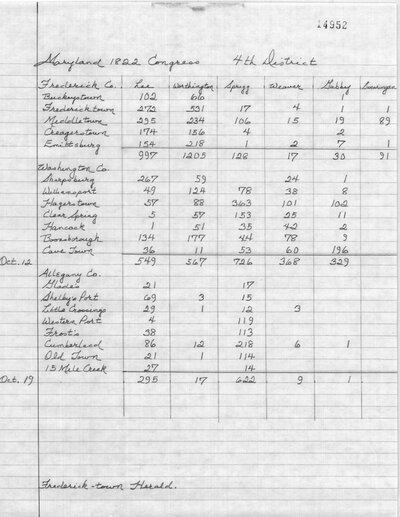 14952
Maryland 1822 Congress 4th District
Frederick Co. Lee Worthington Sprigg Weaver Gabby
Buckeystown 102 66
Fredericktown 272 531 17 4 1 1
Middletown 295 234 106 15 19 89
Creagerstown 174 156 4 2
Emittsburg 154 218 1 2 7 1
997 1205 128 17 30 91
Washington Co.
Sharpsburg 267 59 24 1
Williamsport 49 124 78 38 8
Hagerstown 57 88 363 101 102
Clear Spring 5 57 153 25 11
Hancock 1 51 35 42 2
Boonsborough 134 177 44 78 9
Cave Town 36 11 53 60 196
Oct. 12 549 567 726 368 329
Allegany Co.
Glades 21 17
Shelby's Port 69 3 15
Little Crossings 29 1 12 3
Western Port 4 119
Frost's 38 113
Cumberland 86 12 218 6 1
Old Town 21 1 114
15 Mile Creek 27 14
Oct. 19 295 17 622 9 1
Frederick-town Herald.